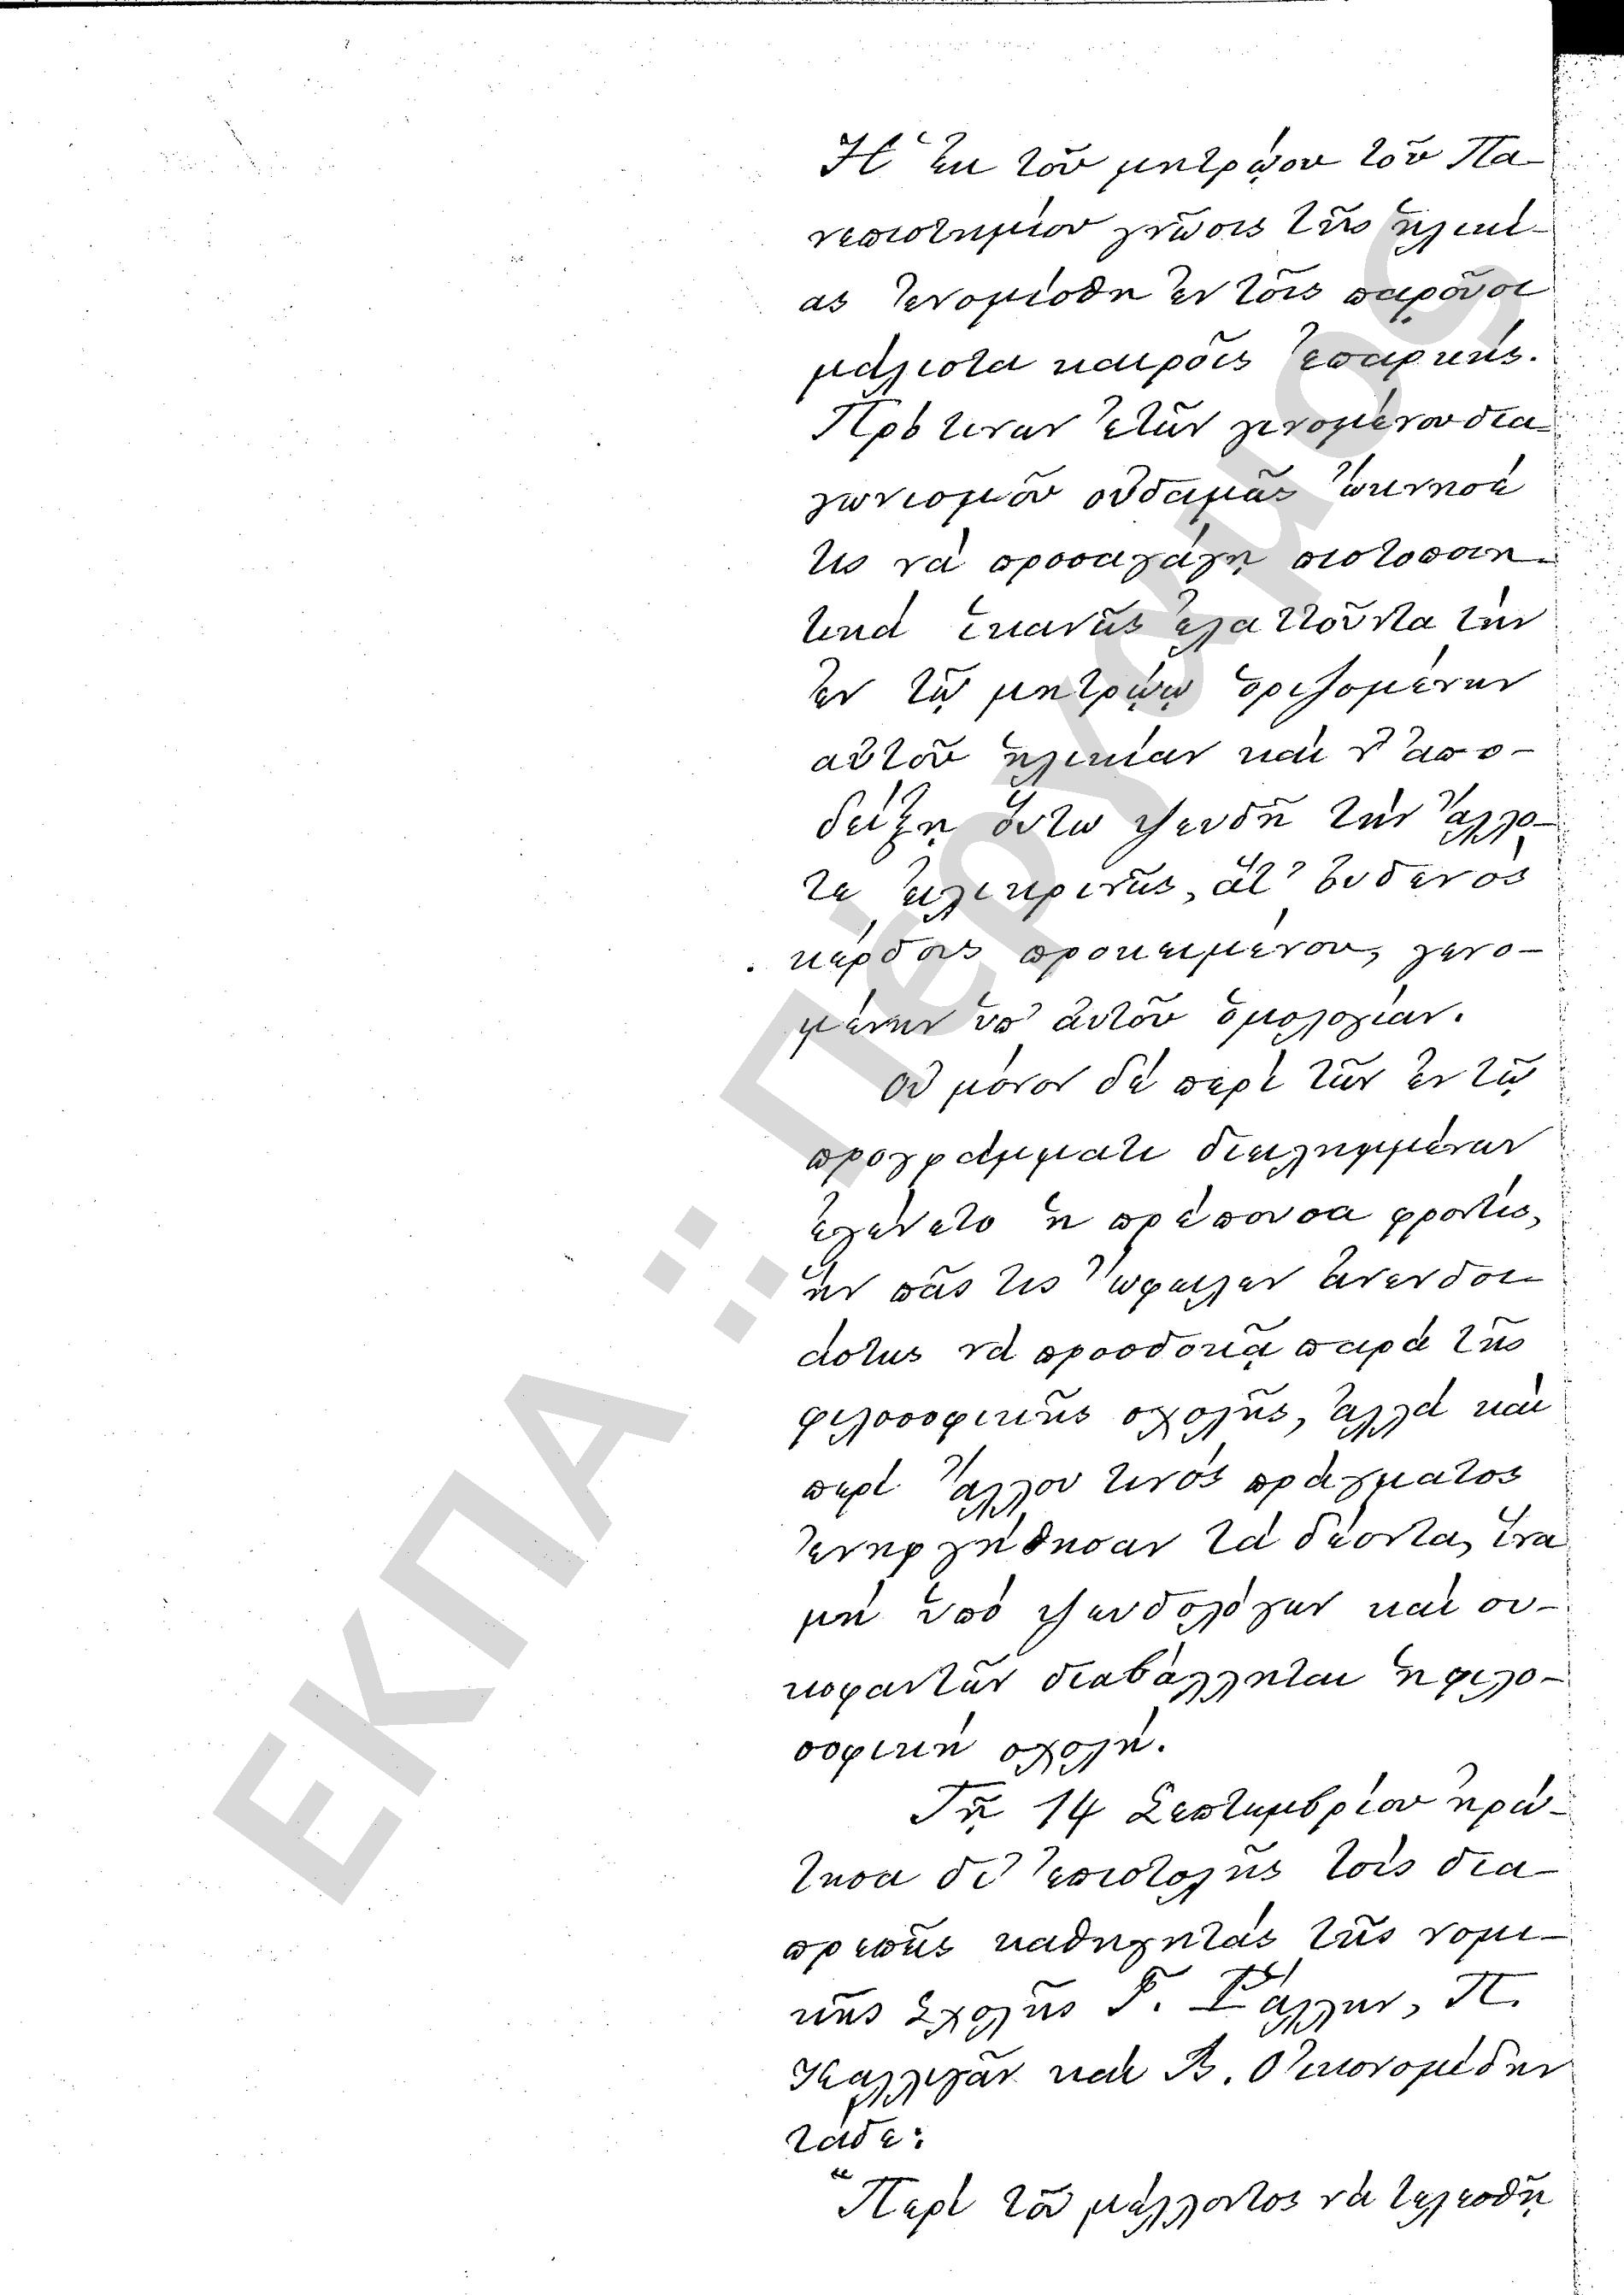 Ἡ ἐκ τοῦ μητρῴου τοῦ Πα-
νεπιστημίου γνῶσις τῆς ἡλικί-
ας ἐνομίσθη ἐν τοῖς παροῦσι
μάλιστα καιροῖς ἐπαρκής.
Πρό τινων ἐτῶν γενομένου δια-
γωνισμοῦ οὐδαμῶς ὤκνησέ
τις νὰ προσαγάγῃ πιστοποιη-
τικὰ ἱκανῶς ἐλαττοῦντα τὴν
ἐν τῷ μητρῴῳ ὁριζομένην
αὐτοῦ ἡλικίαν καὶ ν' ἀπο-
δείξῃ οὕτω ψευδῆ τὴν ἄλλο-
τε εἰλικρινῶς, ἅτ' οὐδενὸς
κέρδους προκειμένου, γενο-
μένην ὑπ' αὐτοῦ ὁμολογίαν.
Οὐ μόνον δὲ περὶ τῶν ἐν τῷ
προγράμματι διειλημμένων
ἐγένετο ἡ πρέπουσα φροντίς,
ἣν πᾶς τις ὤφειλεν ἀνενδοι-
άστως νὰ προσδοκᾷ παρὰ τῆς
φιλοσοφικῆς σχολῆς, ἀλλὰ καὶ
περὶ ἄλλου τινὸς πράγματος
ἐνηργήθησαν τὰ δέοντα, ἵνα
μὴ ὑπὸ ψευδολόγων καὶ συ-
κοφαντῶν διαβάλληται ἡ φιλο-
σοφικὴ σχολή.
Τῇ 14 Σεπτεμβρίου ἠρώ-
τησα δι' ἐπιστολῆς τοὺς δια-
πρεπεῖς καθηγητὰς τῆς νομι-
κῆς Σχολῆς Γ. Ῥάλλην, Π.
Καλλιγᾶν καὶ Β. Οἰκονομίδην
τάδε:
"Περὶ τοῦ μέλλοντος νὰ τελεσθῇ
ΕΚΠΑ :: Πέργαμος